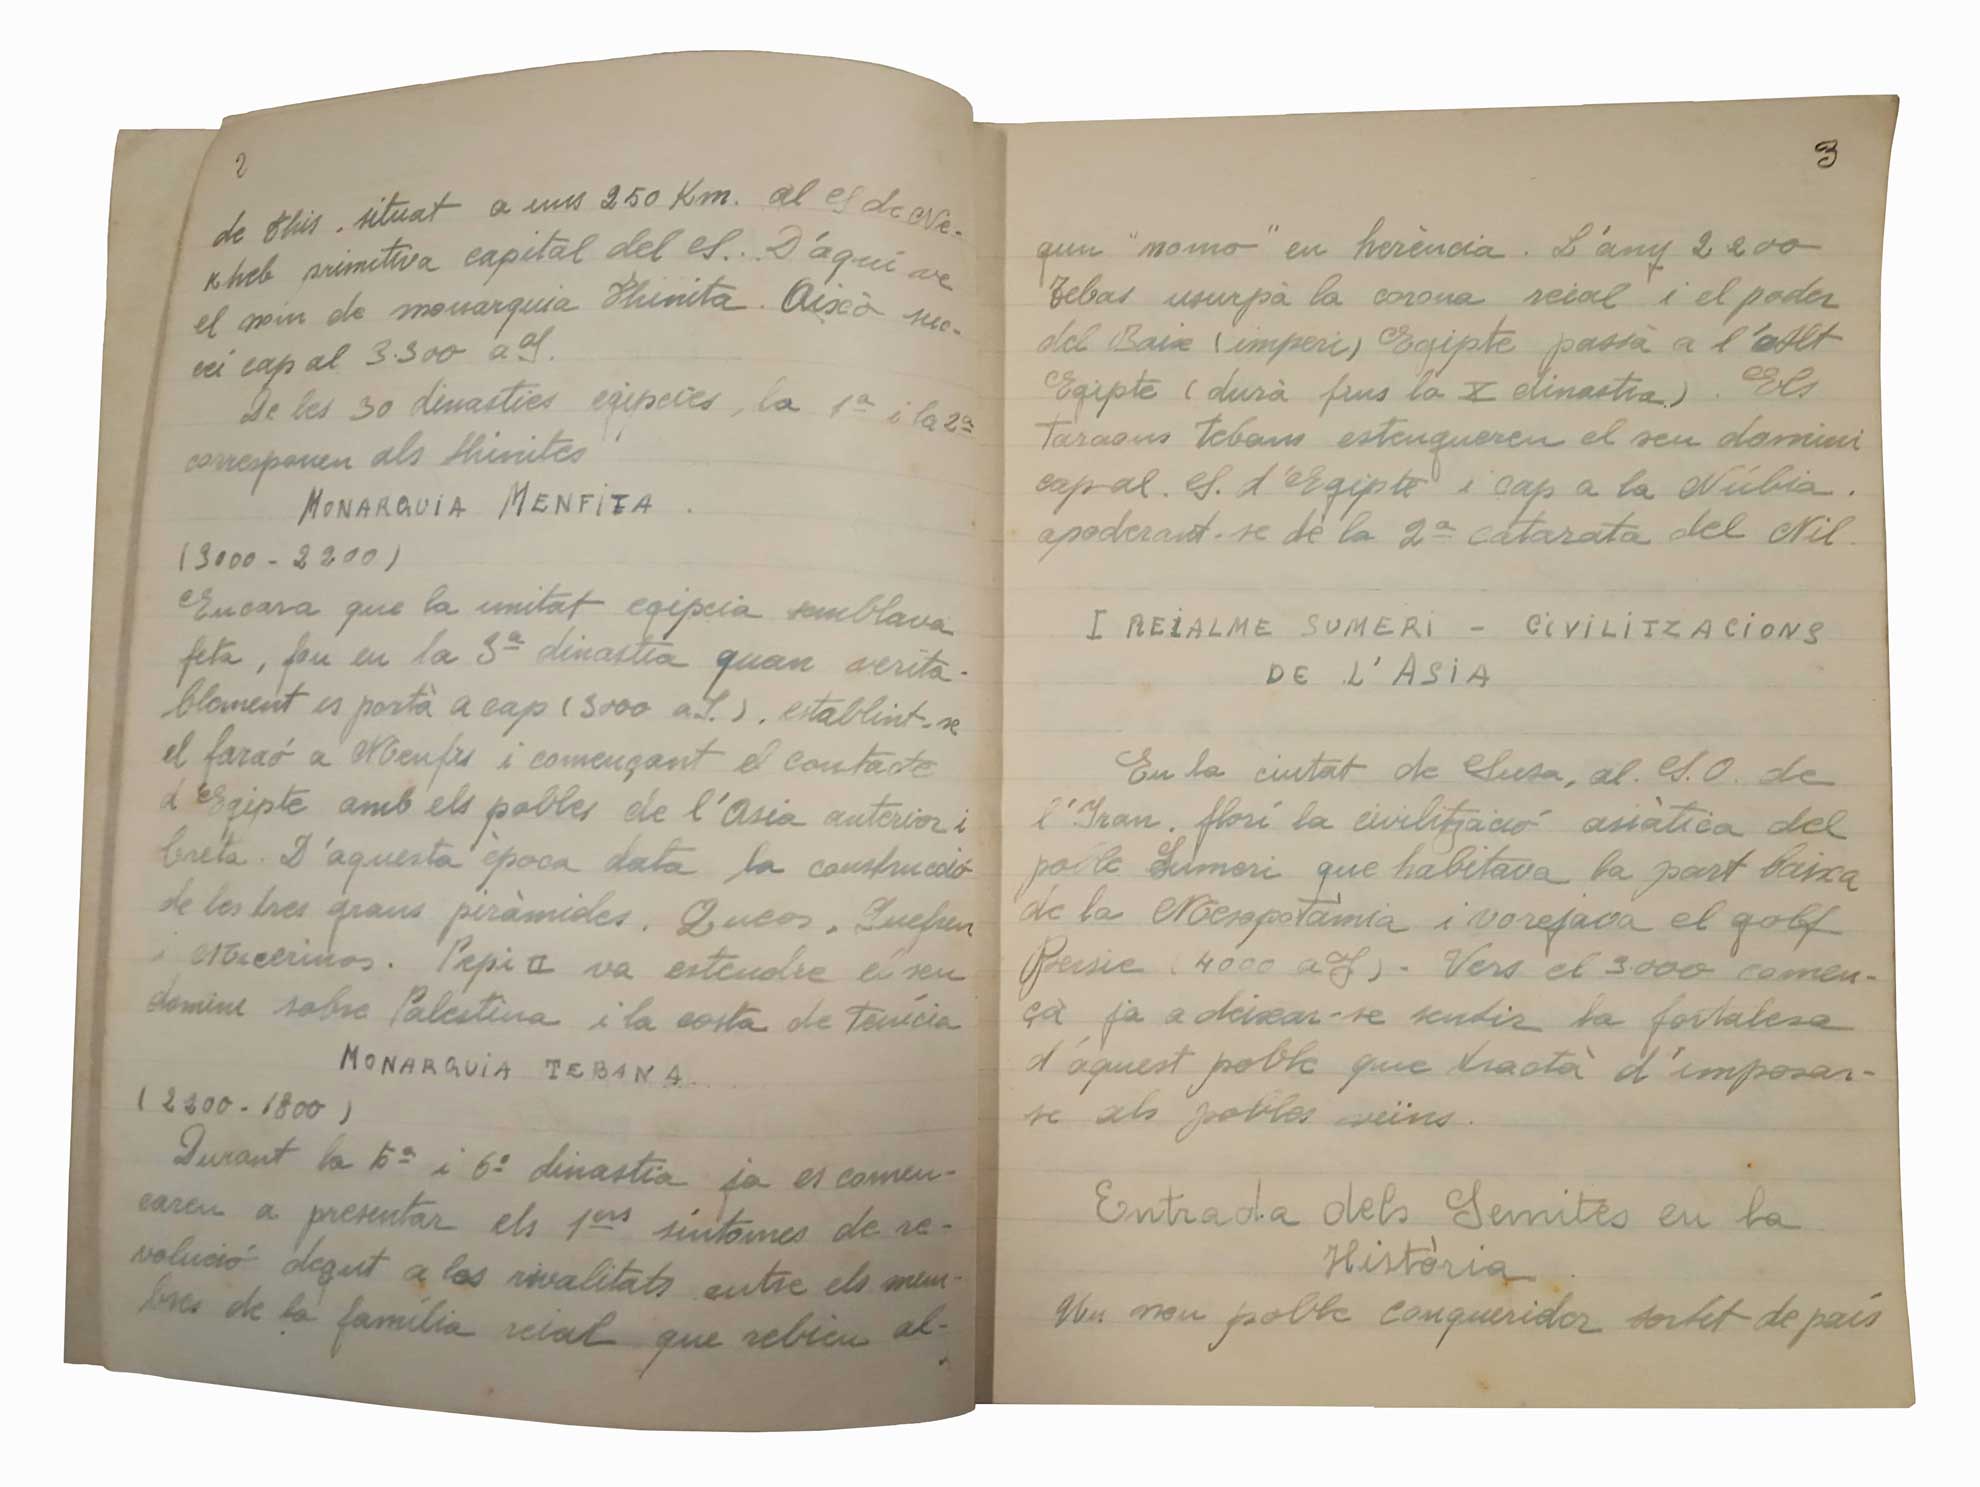 2
de this. situat a uns 250 Km. al S de Ne-
kheb primitiva capital del S... D'aquí ve
el nom de monarquia Thinita. Això suc-
ceí cap al 3.300 a J.
De les 30 dinasties egipcies, la 1ª i la 2ª
corresponen als thinites
MONARQUIA MENFITA.
(3000 - 2200)
Encara que la unitat egipcia semblava
feta, fou en la 3ª dinastia quan verita-
blement es portà a cap (3000 a J.). establint-se
el faraó a Menfis i començant el contacte
d'Egipte amb els pobles de l'Asia anterior i
Creta. D'aquesta època data la construcció
de les tres grans piràmides. Queos, Quefren
i Micerinos. Pepi II va estendre el seu
domini sobre Palestina i la costa de Fenícia
MONARQUIA TEBANA.
(2200 - 1800)
Durant la 5ª i 6ª dinastia ja es comen-
çaren a presentar els 1ers síntomes de re-
volució degut a les rivalitats entre els mem-
bres de la família reial que rebien al-
3
gun "nomo" en herència. L'any 2200
Tebas usurpà la corona reial i el poder
del Baix (imperi) Egipte passà a l'Alt
Egipte (durà fins la X dinastia). Els
faraons tebans estengueren el seu domini
cap al. S. d'Egipte i cap a la Núbia.
apoderant-se de la 2ª catarata del Nil.
I REIALME SUMERI - CIVILITZACIONS
DE L'ASIA
En la ciutat de Susa, al. S.O. de
l'Iran. florí la civilització asiàtica del
poble Sumeri que habitava la part baixa
de la Mesopotàmia i vorejava el golf
Persic (4000 a J) - Vers el 3000 comen-
çà ja a deixar-se sentir la fortalesa
d'aquest poble que tractà d'imposar-
se als pobles veïns.
Entrada dels Semites en la
Història.
Un nou poble conqueridor sortit de país